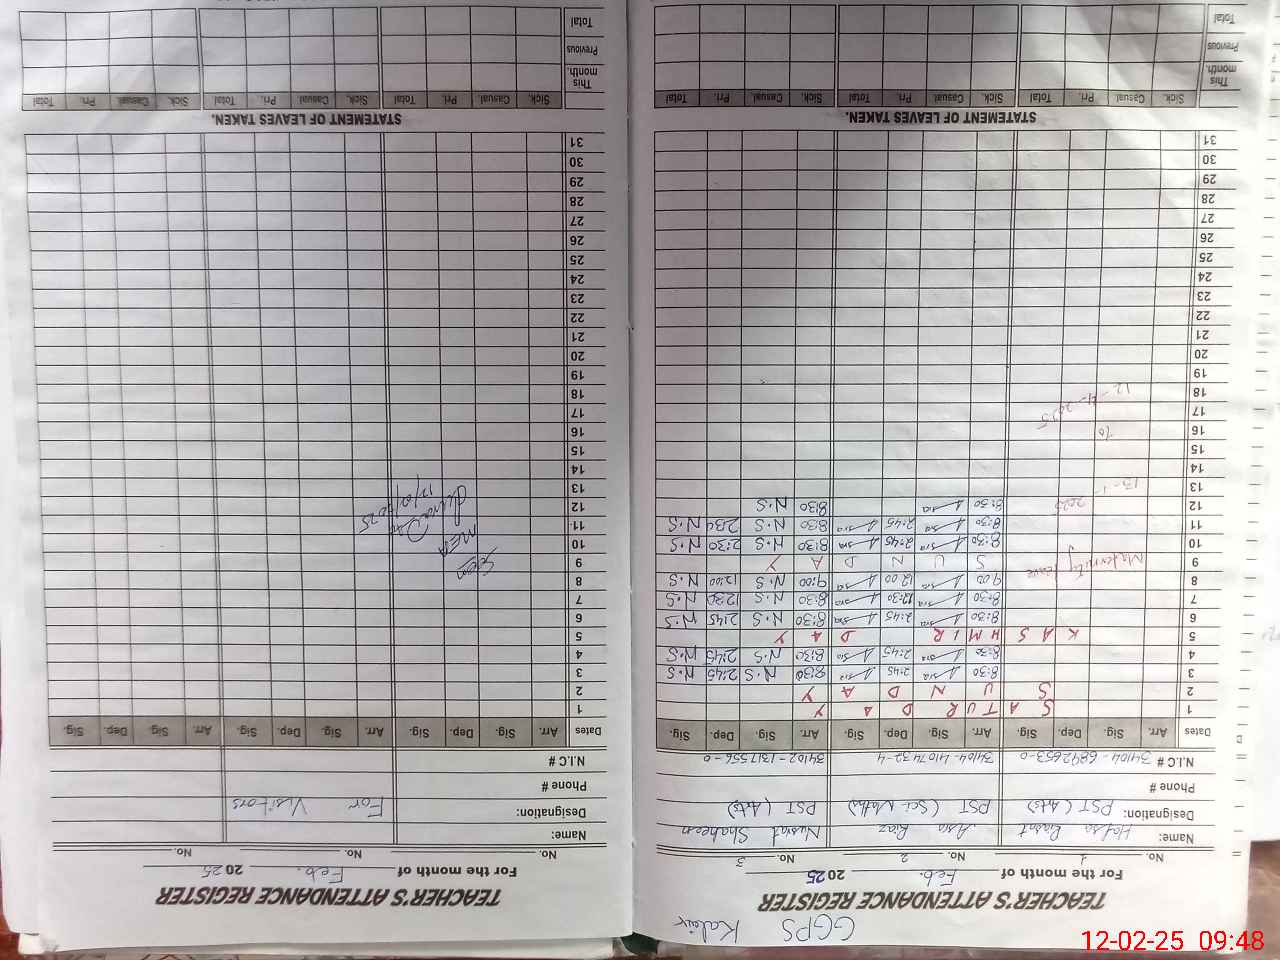 GGPS Kalair
TEACHER'S ATTENDANCE REGISTER
For the month of Feb. 2025
No. 1 No. 2 No. 3
Name: Hafsa Basrat Asa Riaz Nusrat Shaheen
Designation: PST (Arts) PST (Sci-Maths) PST (Arts)
Phone #
N.I.C # 34104-6842653-0 34104-4107432-4 34102-1317556-0
Dates Arr. Sig. Dep. Sig. Arr. Sig. Dep. Sig. Arr. Sig. Dep. Sig.
1 S A T U R D A Y
2 S U N D A Y
3 8:30 2:45 8:30 N.S 2:45 N.S
4 8:30 2:45 8:30 N.S 2:45 N.S
5 K A S H M I R D A Y
6 8:30 2:45 8:30 N.S 2:45 N.S
7 8:30 12:30 8:30 N.S 12:30 N.S
8 9:00 12:00 9:00 N.S 12:00 N.S
Maternity leave
9 S U N D A Y
10 8:30 2:45 8:30 N.S 2:30 N.S
11 8:30 2:45 8:30 N.S 2:34 N.S
12 8:30 8:30 N.S
13-1-2025
13
14
15
16 To
17
12-4-2025
18
19
20
21
22
23
24
25
26
27
28
29
30
31
STATEMENT OF LEAVES TAKEN.
Sick. Casual Pri. Total Sick. Casual Pri. Total Sick. Casual Pri. Total
This month.
Previous
Total
TEACHER'S ATTENDANCE REGISTER
For the month of Feb. 2025
No. No. No.
Name:
Designation: For Visitors
Phone #
N.I.C #
Dates Arr. Sig. Dep. Sig. Arr. Dep. Sig. Arr. Sig. Dep. Sig.
1
2
3
4
5
6
7
8
9
Seen
10
MEA
11
12
12/02/2025
13
14
15
16
17
18
19
20
21
22
23
24
25
26
27
28
29
30
31
STATEMENT OF LEAVES TAKEN.
Sick. Casual Pri. Total Sick. Casual Pri. Total Sick. Casual Pri. Total
This month.
Previous
Total
12-02-25 09:48